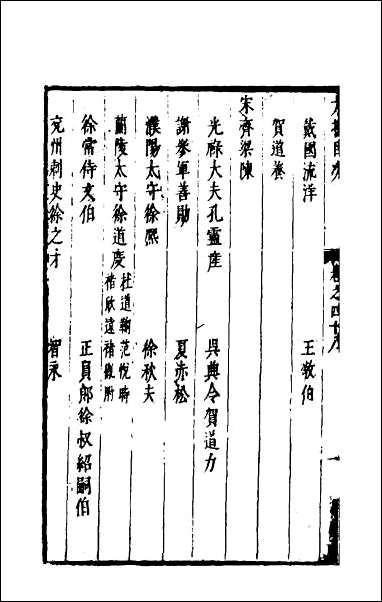 卷之四十八 一
戴國流洋 王敬伯
賀道養
宋齊梁陳
光祿大夫孔靈產 吳興令賀道力
謝參軍善勛 夏赤松
濮陽太守徐熙 徐秋夫
蘭陵太守徐道慶 杜道鞠范悅時
褚欣遠褚胤附
徐常侍文伯 正員郎徐叔紹嗣伯
兗州刺史徐之才 智永